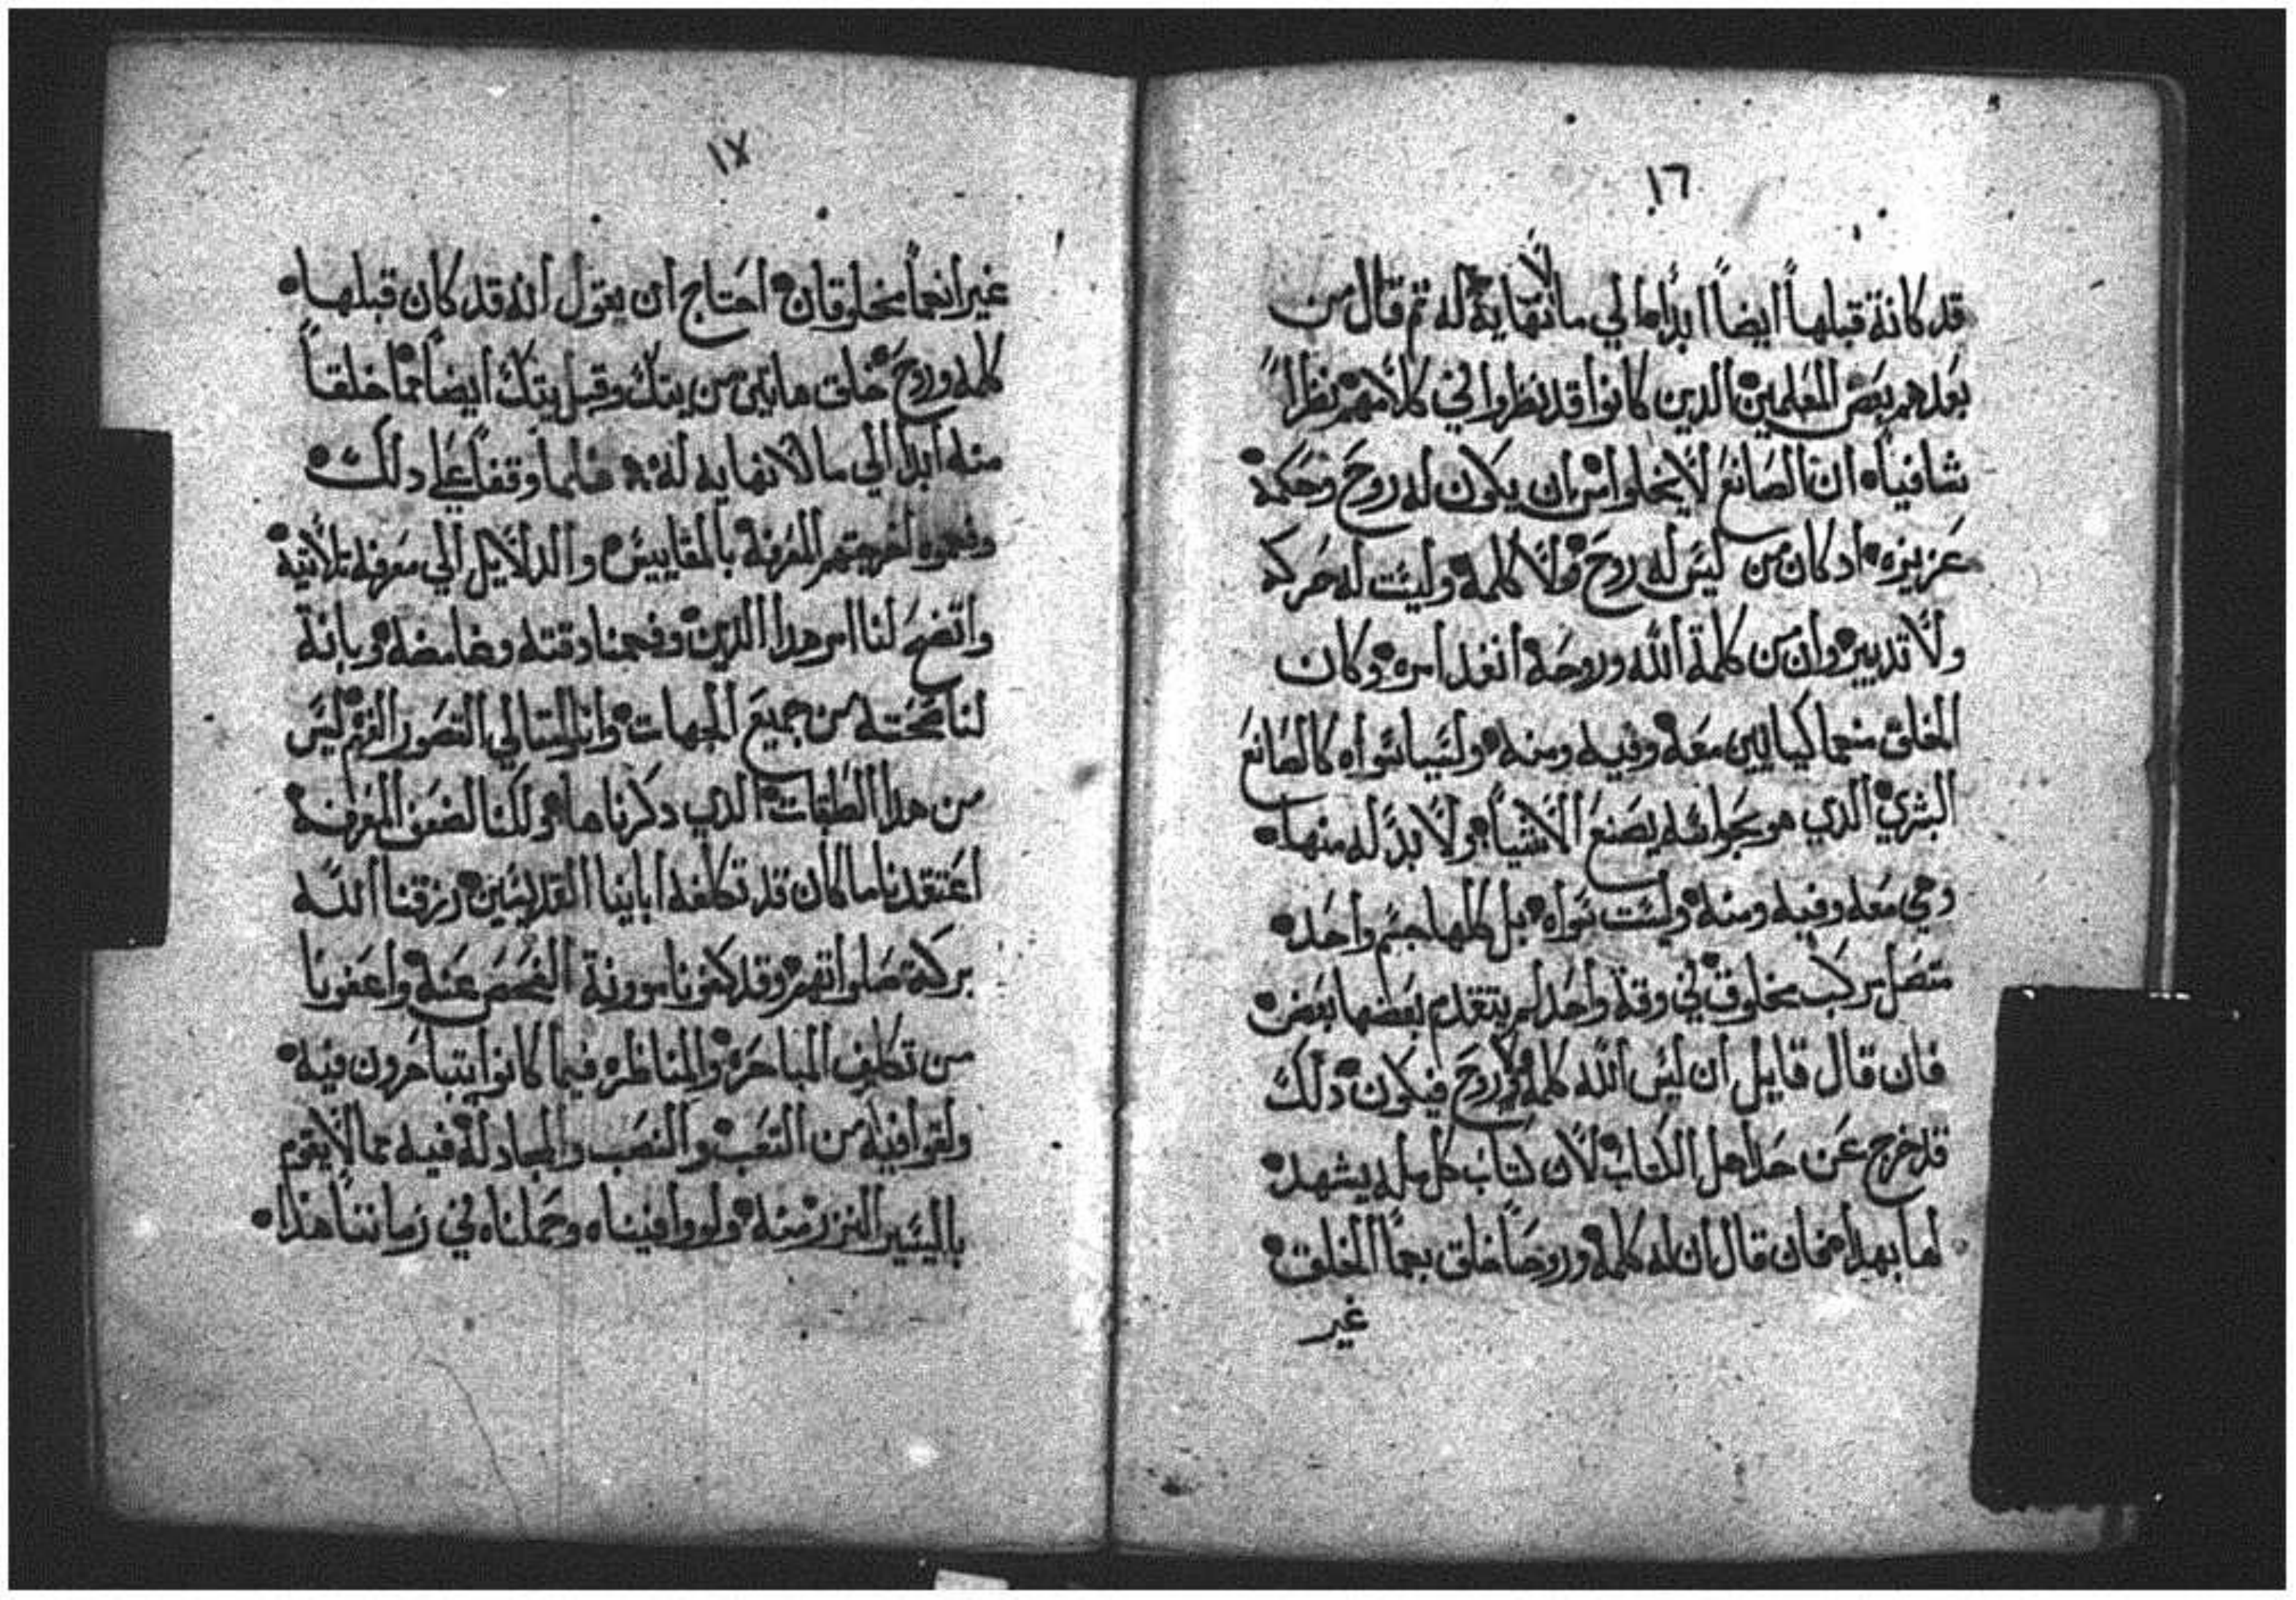 ١٦
قد كانة قبلهاً ايضاً ابداً ما لي ما لا نهاية له ثم قال من
بعدهم بعض المعلمين الدين كانوا قد نظروا في كلامهم نظراً
شافياه ان الصانع لا يخلوا من ان يكون له روح وحكمة
عزيزه اد كان من ليس له روح ولا كلمة وليست له حركه
ولا تدبير وان من كلمة الله وروحه انفد امره وكان
الخلق منهما كيانيين معه وفيه ومنه وليسا سواه كالصانع
البشري الذي هو بحواسه يصنع الاشيا ولا بد له منها
وهي معه وفيه ومنه وليست سواه بل كلها جسم واحد
متصل مركب مخلوق في وقة واحد لم يتقدم بعضها بعض
فان قال قايل ان ليس الله كلمة ولا روح فيكون دلك
قد خرج عن حد اهل الكتاب لان كتاب كل مله يشهد
لها بهدا فان قال ان له كلمة وروحاً خلق بهما الخلق
غير
١٧
غير انهما مخلوقان احتاج ان يقول انه قد كان قبلها
كلمه وروح خلق هاتين من يتك وقبل يتك ايضاً مما خلقاً
منه ابداً الي ما لا نهايه له فلما وقفنا علي دلك
وفهموا اخرجتهم المعرفة بالمقاييس والدلايل الي معرفة تلاتية
واتضح لنا امر هدا الدين وفهمنا دقته وغامضه وبانة
لنا صحته من جميع الجهات وان المتالي التصور الفهم ليس
من هدا الطبقات الدي دكرناها ولكنا لضعف المعرفة
اعتقدنا ما كان قد تكلفه اباينا القديسين رزقنا الله
بركة صلواتهم وقد كفونا موونة الفحص عنه واعفونا
من تكلف المباحره والمناظره فيما كانوا يتباحرون فيه
ولقوا فيه من التعب والنصب والمجادلة فيه مما لا يقوم
باليسير النزر منه ولو وافيناه وحملناه في زماننا هذا